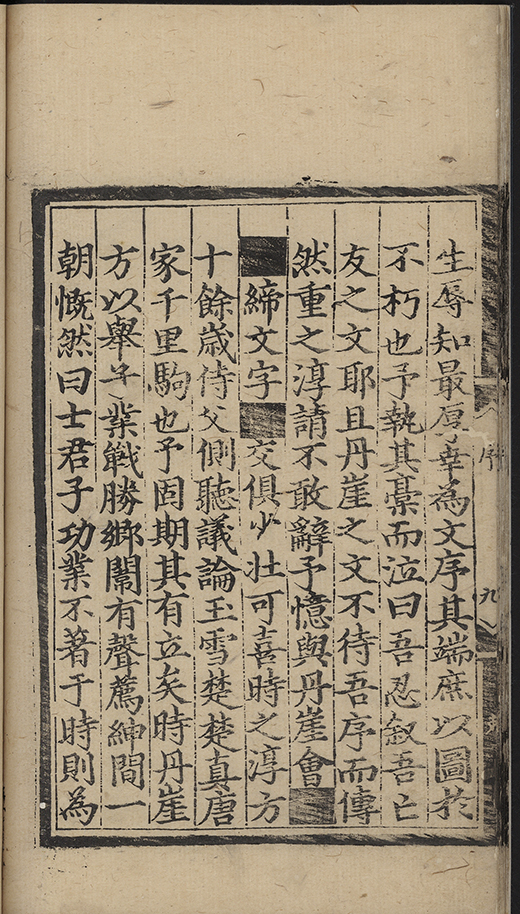 生辱知最厚幸為文序其端庶以圖於
不朽也予執其藁而泣曰吾忍叙吾亡
友之文耶且丹崖之文不待吾序而傳
然重之淳請不敢辭予憶與丹崖會
締文字交俱少壯可喜時之淳方
十餘歲侍父側聽議論玉雪楚楚真唐
家千里駒也予固期其有立矣時丹崖
方以舉子業戰勝鄉闈有聲薦紳間一
朝慨然曰士君子功業不著于時則為
序
九